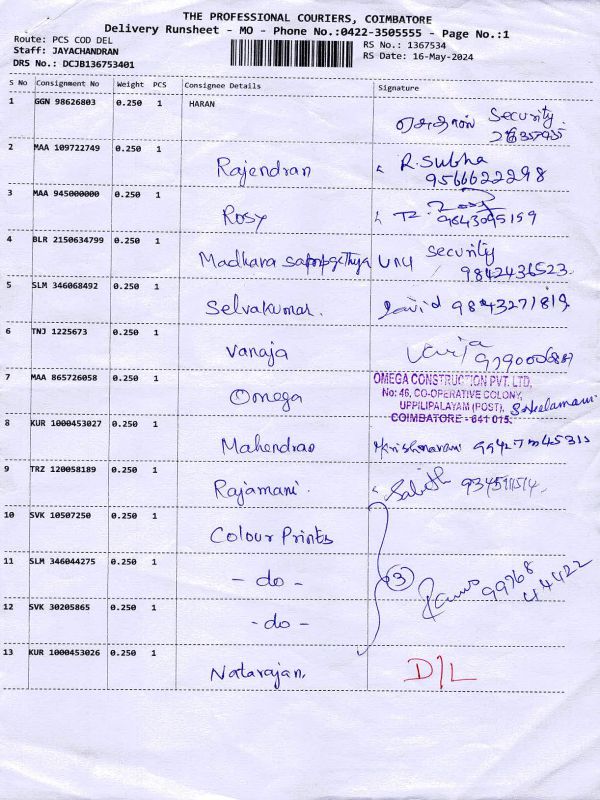 THE PROFESSIONAL COURIERS, COIMBATORE
Delivery Runsheet - MO - Phone No.:0422-3505555 - Page No.:1
Route: PCS COD DEL
Staff: JAYACHANDRAN
DRS No.: DCJB136753401
RS No.: 1367534
RS Date: 16-May-2024
S No Consignment No Weight PCS Consignee Details Signature
1 GGN 98626803 0.250 1 HARAN
Security
2 MAA 109722749 0.250 1 Rajendran R. Subha
9566622298
3 MAA 945000000 0.250 1 Rosy
9843095159
4 BLR 2150634799 0.250 1 Madhara
Security
9842436523.
5 SLM 346068492 0.250 1 Selvakumar. David 9843271819
6 TNJ 1225673 0.250 1 Vanaja
7 MAA 865726058 0.250 1 Omega
OMEGA CONSTRUCTION PVT. LTD,
No: 46, CO-OPERATIVE COLONY,
UPPILIPALAYAM (POST),
COIMBATORE - 641 015.
8 KUR 1000453027 0.250 1 Mahendran
9 TRZ 120058189 0.250 1 Rajamani.
10 SVK 10507250 0.250 1 Colour Prints
11 SLM 346044275 0.250 1 - do - 3
99768
44422
12 SVK 30205865 0.250 1 - do -
13 KUR 1000453026 0.250 1 Natarajan. D/L